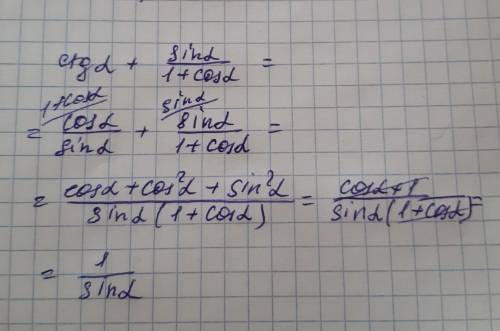 ctg α + sinα/(1+cosα) =
= cosα/sinα (1+cosα) + sinα/(1+cosα) (sinα) =
= (cosα + cos²α + sin²α)/(sinα(1+cosα)) = (cosα+1)/(sinα(1+cosα)) =
= 1/sinα